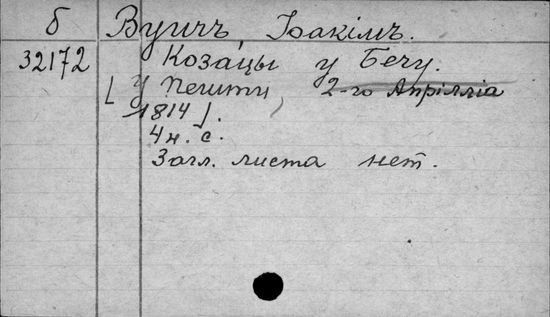 б Вуичъ, Іоакімъ.
32172 Козацы у Бечу.
[У Пешти, 2-го Апрілліа
1814].
4н. с.
Загл. листа нет.